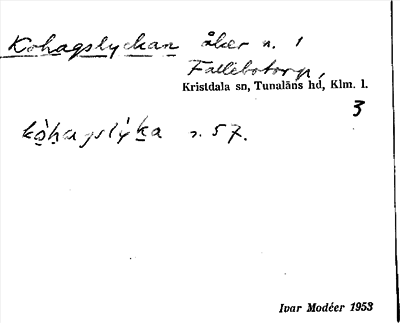 Kohagslyckan åker n. 1
Fallebotorp,
Kristdala sn, Tunaläns hd, Klm. l.
3
kòhagslýka s. 57.
Ivar Modéer 1953